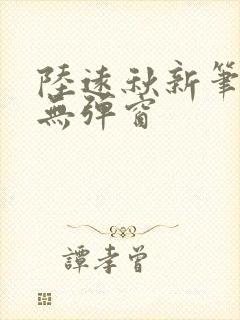 陸遠秋新筆
無彈窗
譚孝曾